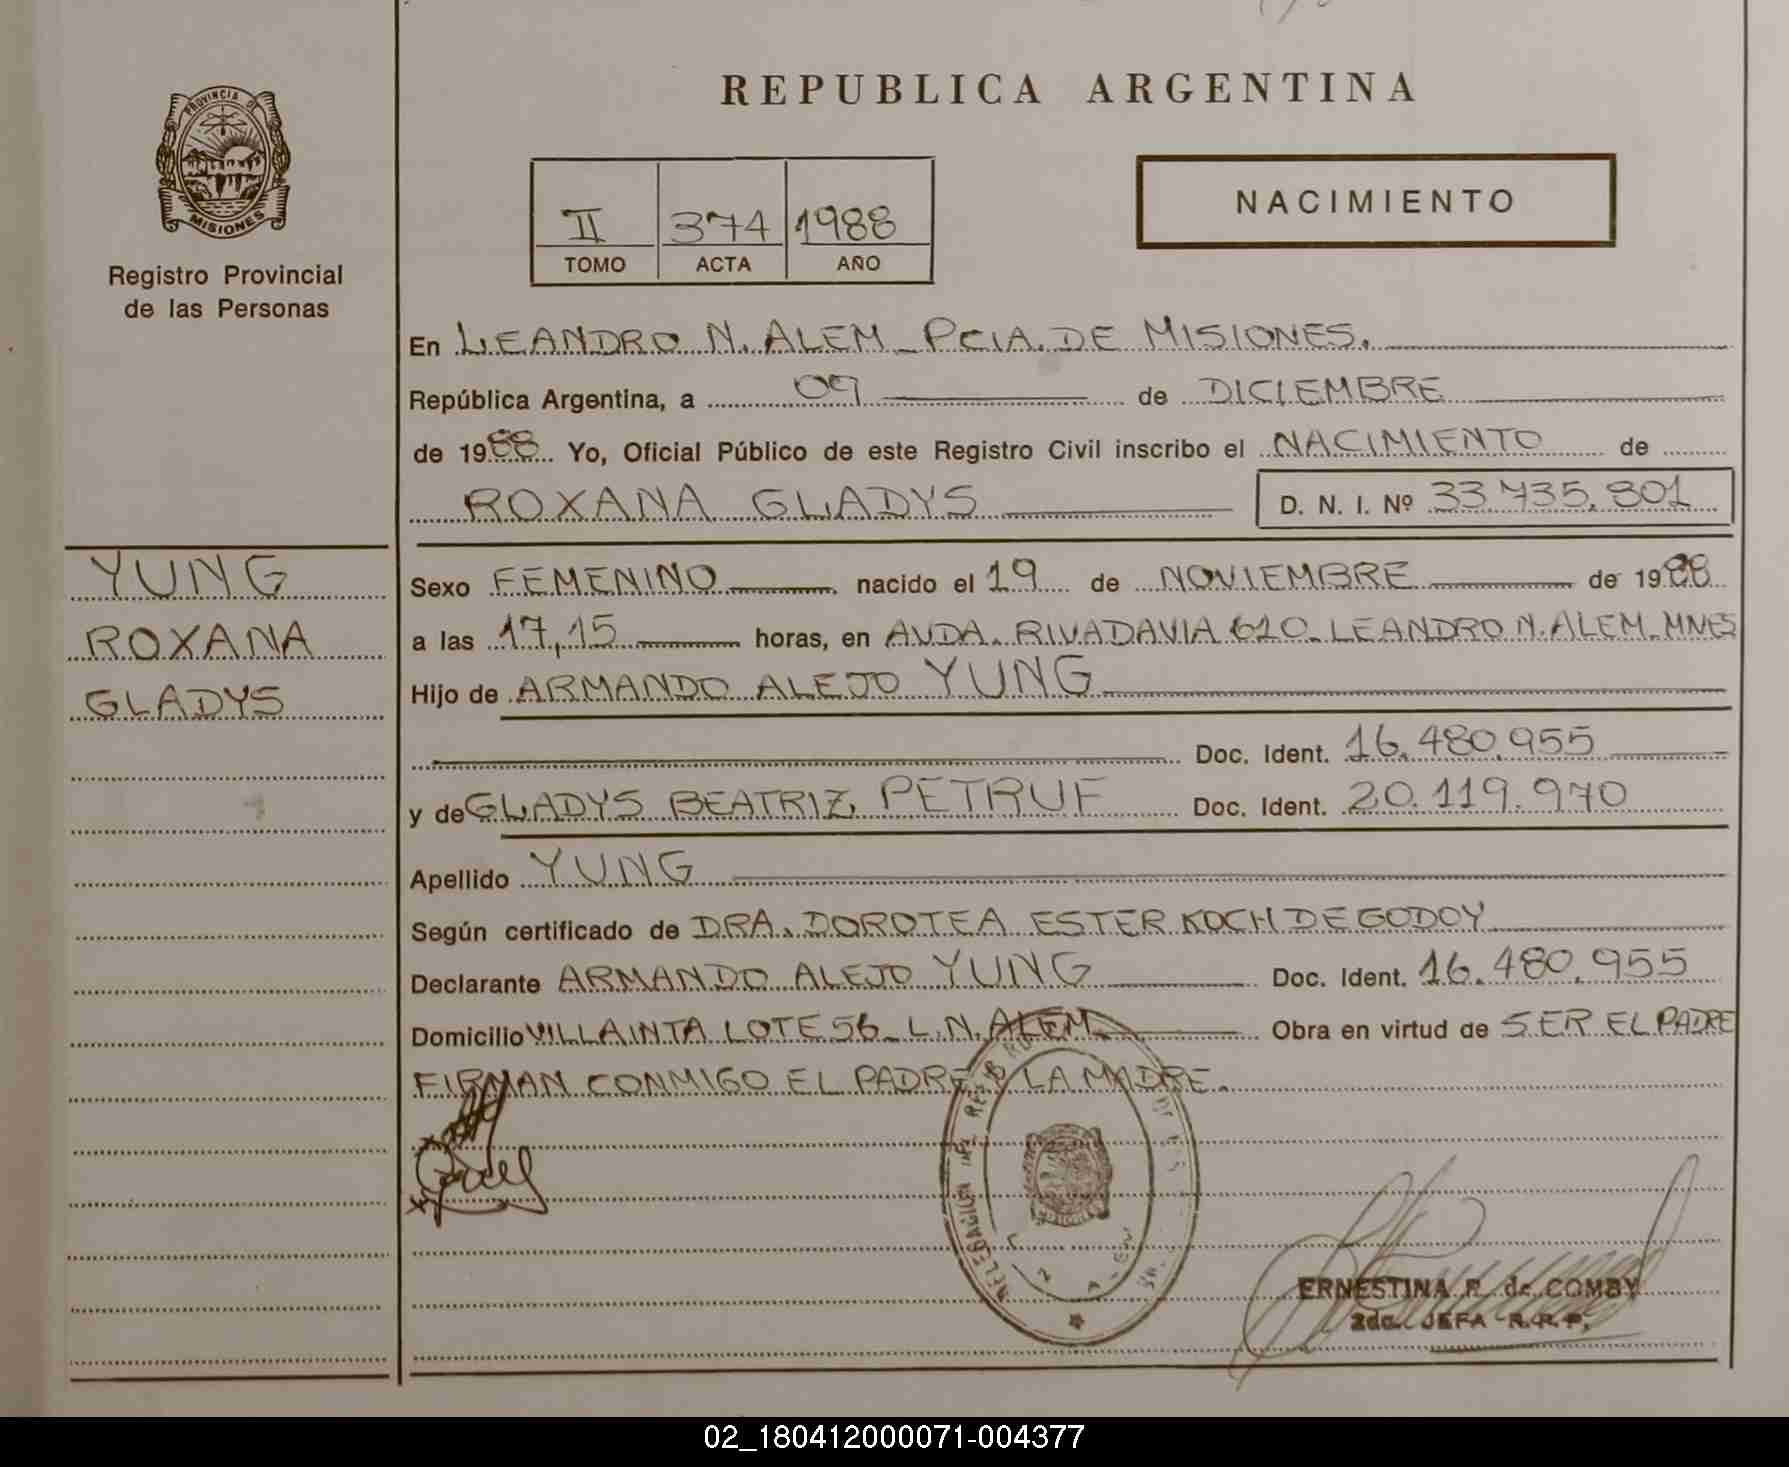 PROVINCIA DE
MISIONES
Registro Provincial
de las Personas
REPUBLICA ARGENTINA
II 374 1988
TOMO ACTA AÑO
NACIMIENTO
En LEANDRO N. ALEM_ PCIA. DE MISIONES.
República Argentina, a 09 de DICIEMBRE
de 1988 Yo, Oficial Público de este Registro Civil inscribo el NACIMIENTO de
ROXANA GLADYS D. N. I. Nº 33.735.801
YUNG
ROXANA
GLADYS
Sexo FEMENINO nacido el 19 de NOVIEMBRE de 1988
a las 17,15 horas, en AVDA. RIVADAVIA 610_ LEANDRO N. ALEM_MNES
Hijo de ARMANDO ALEJO YUNG
Doc. Ident. 16.480.955
y de GLADYS BEATRIZ PETRUF Doc. Ident. 20.119.970
Apellido YUNG
Según certificado de DRA. DOROTEA ESTER KOCH DE GODOY
Declarante ARMANDO ALEJO YUNG Doc. Ident. 16.480.955
Domicilio VILLA INTA LOTE 56_ L.N. ALEM Obra en virtud de SER EL PADRE
FIRMAN CONMIGO EL PADRE Y LA MADRE.
DELEGACION
ERNESTINA R. de COMBY
2da. JEFA R.R.P.
02_180412000071-004377